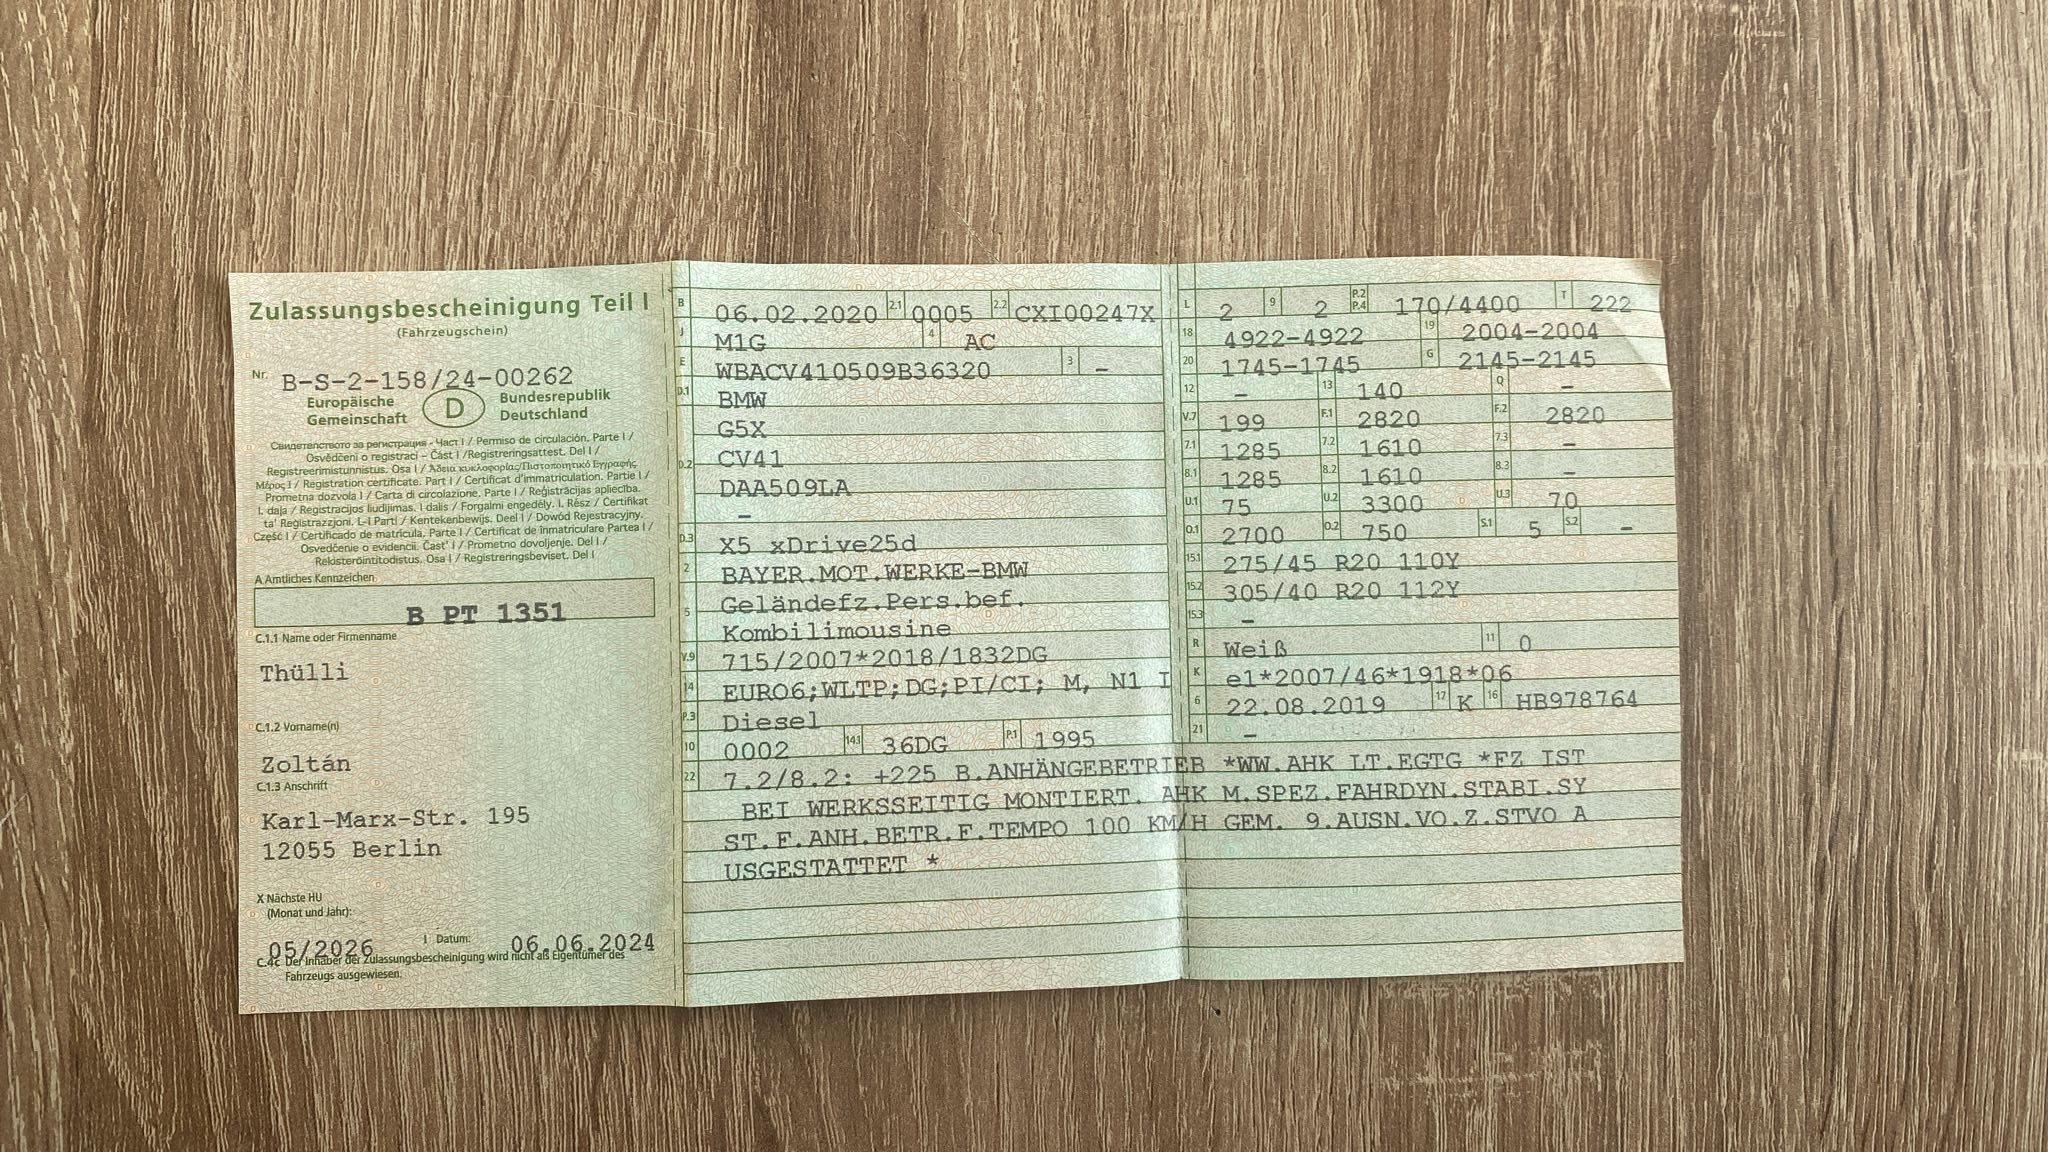 Zulassungsbescheinigung Teil I
(Fahrzeugschein)
Nr. B-S-2-158/24-00262
Europäische Gemeinschaft D Bundesrepublik Deutschland
Свидетелството за регистрация - Част I / Permiso de circulación. Parte I /
Osvědčení o registraci - Část I / Registreringsattest. Del I /
Registreerimistunnistus. Osa I / Άδεια κυκλοφορίας/Πιστοποιητικό Εγγραφής
Μέρος I / Registration certificate. Part I / Certificat d'immatriculation. Partie I /
Prometna dozvola I / Carta di circolazione. Parte I / Reģistrācijas apliecība.
I. daļa / Registracijos liudijimas. I dalis / Forgalmi engedély. I. Rész / Ċertifikat
ta' Reġistrazzjoni. L-I Parti / Kentekenbewijs. Deel I / Dowód Rejestracyjny.
Część I / Certificado de matrícula. Parte I / Certificat de înmatriculare Partea I /
Osvedčenie o evidencii. Časť I / Prometno dovoljenje. Del I /
Rekisteröintitodistus. Osa I / Registreringsbeviset. Del I
A Amtliches Kennzeichen
B PT 1351
C.1.1 Name oder Firmenname
Thülli
C.1.2 Vorname(n)
Zoltán
C.1.3 Anschrift
Karl-Marx-Str. 195
12055 Berlin
X Nächste HU
(Monat und Jahr):
05/2026 I Datum: 06.06.2024
C.4c Der Inhaber der Zulassungsbescheinigung wird nicht als Eigentümer des
Fahrzeugs ausgewiesen.
B 06.02.2020 2.1 0005 2.2 CXI00247X
J M1G 4 AC
E WBACV410509B36320 3 -
D.1 BMW
G5X
D.2 CV41
DAA509LA
-
D.3 X5 xDrive25d
2 BAYER.MOT.WERKE-BMW
5 Geländefz.Pers.bef.
Kombilimousine
V.9 715/2007*2018/1832DG
14 EURO6;WLTP;DG;PI/CI; M, N1 I
P.3 Diesel
10 0002 14.1 36DG P.1 1995
L 2 9 2 P.2 P.4 170/4400 T 222
18 4922-4922 19 2004-2004
20 1745-1745 G 2145-2145
12 - 13 140 Q -
V.7 199 F.1 2820 F.2 2820
7.1 1285 7.2 1610 7.3 -
8.1 1285 8.2 1610 8.3 -
U.1 75 U.2 3300 U.3 70
O.1 2700 O.2 750 S.1 5 S.2 -
15.1 275/45 R20 110Y
15.2 305/40 R20 112Y
15.3 -
R Weiß 11 0
K e1*2007/46*1918*06
6 22.08.2019 17 K 16 HB978764
21 -
22 7.2/8.2: +225 B.ANHÄNGEBETRIEB *WW.AHK LT.EGTG *FZ IST
BEI WERKSSEITIG MONTIERT. AHK M.SPEZ.FAHRDYN.STABI.SY
ST.F.ANH.BETR.F.TEMPO 100 KM/H GEM. 9.AUSN.VO.Z.STVO A
USGESTATTET *